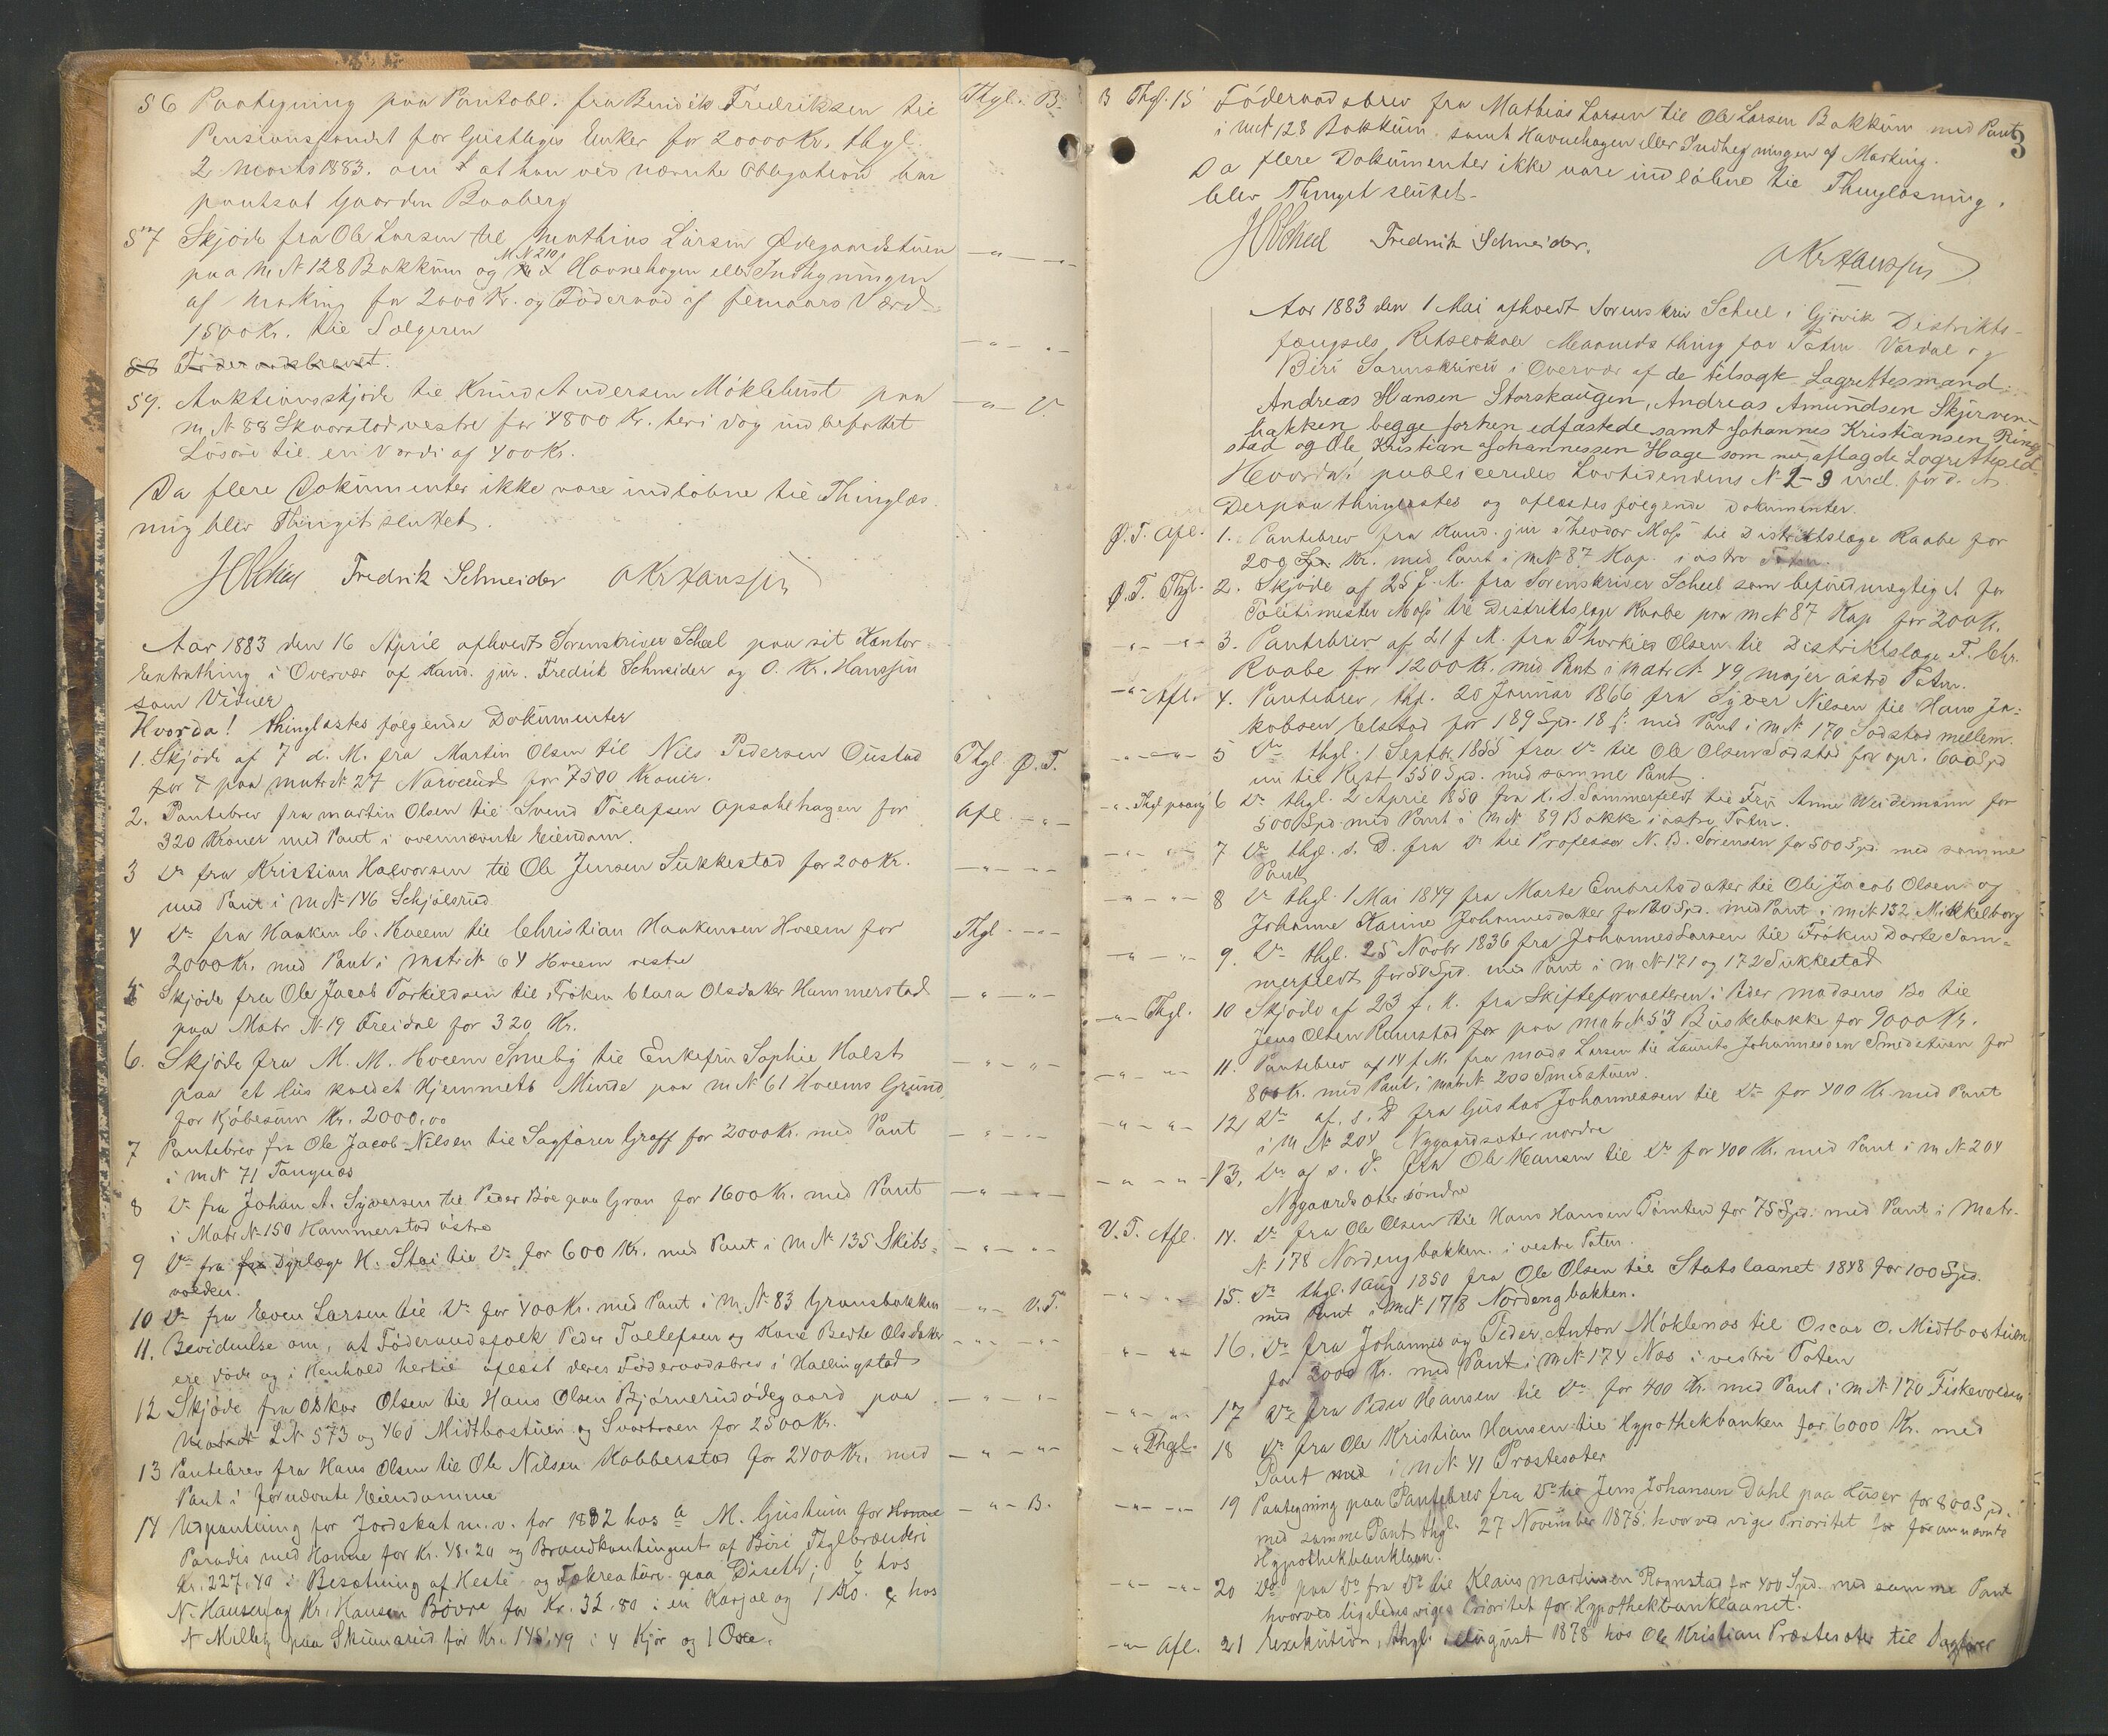 56 Paategning paa Pantobl. fra Bendik Fredriksen til Thgl. B.
Pensionsfondet for Geistliges Enker for 20000 Kr. thgl.
2 Marts 1883. om at han ved nævnte Obligation har
pantsat Gaarden Braaberg
57 Skjøde fra Ole Larsen til Mathias Larsen Ødegaardstuen
paa M. N. 128 Bakkum og M N 210 Havnehagen eller Indhegningen
af Marking for 2000 Kr. og Föderaad af femaars Værd
1500 Kr. til Sælgeren
58 Föderaadsbrevet.
59. Auktionsskjöde til Knud Andersen Möklehust paa V.
M. N. 88 Skaarstad vestre for 4800 Kr. heri dog indbefattet
Lösöre til en Værdi af 400 Kr.
Da flere Dokumenter ikke vare indløbne til Thinglæs
ning blev Thinget sluttet.
H Scheel Fredrik Schneider O Kr Hanssen
Aar 1883 den 16 April afholdt Sorenskriver Scheel paa sit Kontor
Extrathing i Overvær af Kand. jur. Fredrik Schneider og O. Kr. Hanssen
som Vidner
Hvorda! thinglæstes følgende Dokumenter
1. Skjöde af 7 d. M. fra Martin Olsen til Nils Pedersen Oustad Thgl. Ø. T.
for paa matr N. 27 Narverud for 7500 Kroner.
2. Pantebrev fra Martin Olsen til Svend Tollefsen Opsahlhagen for Afl.
320 Kroner med Pant i ovennævnte Eiendom.
3 Do fra Kristian Halvorsen til Ole Jensen Sukkestad for 200 Kr.
med Pant i M N. 146 Schjölsrud
4 Do fra Haaken C. Hveem til Christian Haakensen Hveem for Thgl.
2000 Kr. med Pant i Matr N. 64 Hveem vestre
5 Skjöde fra Ole Jacob Torkildsen til Fröken Clara Olsdatter Hammerstad
paa Matr N. 19 Freidal for 320 Kr.
6. Skjöde fra M. M. Hveem Smeby til Enkefru Sophie Holst
paa et Hus kaldet Hjemmets Minde paa M N 61 Hveems Grund,
for Kjöbesum Kr. 2000,00
7 Pantebrev fra Ole Jacob Nilsen til Sagförer Graff for 2000 Kr. med Pant
i M N 71 Tangnæs
8 Do fra Johan A. Syversen til Peder Böe paa Gran for 1600 Kr. med Pant
i Matr N. 150 Hammerstad östre
9 Do fra Dyrlæge H. Stai til Do for 600 Kr. med Pant i M N. 135 Skibs-
volden.
10 Do fra Even Larsen til Do for 400 Kr. med Pant i M. N. 83 Gransbakken V. T.
11. Bevidnelse om, at Föderaadsfolk Peder Tollefsen og Kone Berthe Olsdatter
ere döde og i Henhold hertil aflæst deres Föderaadsbrev i Hallingstad
12 Skjöde fra Oskar Olsen til Hans Olsen Bjørnerudödegaard paa
L N. 573 og 460 Midtbostuen og Svartroen for 2500 Kr.
13 Pantebrev fra Hans Olsen til Ole Nilsen Kabberstad for 2400 Kr. med
Pant i fornævnte Eiendomme
14 Udpantning for Jordskat m. v. for 1882 hos a M. Gjestrum for B.
Paradis med Honne for Kr. 48.20 og Brandkontingent af Biri Teglbrænderi
Kr. 227,40 i Besætning af Heste og Fækreature paa Diseth; b hos
N. Hansen og Kr. Hansen Bövre for Kr. 32.80 i en Karjol og 1 Ko. c hos
N Melby paa Skumsrud for Kr. 145,49 i 4 Kjör og 1 Oxe.
3
B Thgl. 15 Föderaadsbrev fra Mathias Larsen til Ole Larsen Bakkum med Pant
i M N 128 Bakkum samt Havnehagen eller Indhegningen af Marking.
Da flere Dokumenter ikke vare indløbne til Thinglæsning,
blev Thinget sluttet.
H Scheel Fredrik Schneider.
O Kr Hanssen
Aar 1883 den 1 Mai afholdt Sorenskriv Scheel i Gjövik Distrikts-
fængsels Retslokale Maanedsthing for Toten Vardal og
Biri Sorenskriveri i Overvær af de tilsagte Lagrettesmænd
Andreas Hansen Storskaugen, Andreas Amundsen Skjerven-
bakken begge forhen edfæstede samt Johannes Kristiansen Ring
stad og Ole Kristian Johannessen Hage som nu aflagde Lagrettesed
Hvorda! publiceredes Lovtidendens N. 2-9 incl. for d. A.
Derpaa thinglæstes og aflæstes følgende Dokumenter.
Ø. T. Afl. 1. Pantebrev fra Kand. jur Theodor Moss til Distriktslæge Raabe for
200 Kr. med Pant i M N 87 Kap i østre Toten.
Ø. T. Thgl. 2. Skjöde af 25 f. M. fra Sorenskriver Scheel som befuldmægtiget for
Politimester Moss til Distriktslæge Raabe paa M N 87 Kap for 200 Kr.
3. Pantebrev af 21 f M. fra Thorkild Olsen til Distriktslæge F. Chr.
Raabe for 1200 Kr. med Pant i Matr N. 49 Majer østre Toten.
Afl. 4. Pantebrev, thgl. 20 Januar 1866 fra Syver Nilsen til Hans Ja-
kobsen Elstad for 189 Spd. 18 ß. med Pant i M N. 170 Sodstad mellem.
5 Do thgl. 1 Septbr. 1855 fra Do til Ole Olsen Sodstad for opr. 600 Spd
nu til Rest 550 Spd. med samme Pant.
6 Do thgl. 2 April 1850 fra K. S. Sommerfeldt til Fru Anne Weidemann for
500 Spd. med Pant i M N. 89 Bakke i østre Toten.
7 Do thgl. s. D. fra Do til Professor N. B. Sörensen for 500 Spd. med samme
Pant
8 Do thgl. 1 Mai 1849 fra Marte Embretsdatter til Ole Jacob Olsen og
Johanne Karine Johannesdatter for 120 Spd. med Pant i M N. 132 Mikkelborg
9. Do thgl. 25 Novbr 1836 fra Johannes Larsen til Fröken Dorte Som-
merfeldt for 50 Spd. med Pant i M N. 171 og 172 Sukkestad
Thgl. 10 Skjöde af 23 f. M. fra Skifteforvalteren i Peder Madsens Bo til
Jens Olsen Raustad for paa Matr N. 53 Buskebakke for 9000 Kr.
11. Pantebrev af 14 f. M. fra Mads Larsen til Laurits Johannessen Smedstuen for
800 Kr. med Pant i Matr N. 200 Smedstuen.
12 Do af. s. D fra Gustav Johannessen til Do for 400 Kr. med Pant
i M N. 204 Nygaardsæter nordre
13. Do af s. D. fra Ole Hansen til Do for 400 Kr. med Pant i M N. 204
Nygaardsæter söndre
V. T. Afl. 14. Do fra Ole Olsen til Hans Hansen Tömten for 75 Spd. med Pant i Matr.
N. 178 Nordengbakken i vestre Toten.
15. Do thgl. 1 Aug 1850 fra Ole Olsen til Statslaanet 1848 for 100 Spd.
med Pant i M N 178 Nordengbakken.
16. Do fra Johannes og Peder Anton Möklenæs til Oscar O. Midtbostuen
for 2000 Kr. med Pant i M N 174 Næs i vestre Toten
17 Do fra Peder Hansen til Do for 400 Kr. med Pant i M N. 170 Fiskevolden
Thgl. 18 Do fra Ole Kristian Hansen til Hypothekbanken for 6000 Kr. med
Pant i M N. 41 Præstesæter
19 Paategning paa Pantebrev fra Do til Jens Johansen Dahl paa Huser for 800 Spd.
med samme Pant thgl. 27 November 1875. hvorved viges Prioritet for forannævnte
Hypothekbanklaan.
20 Do paa Do fra Do til Klaus Martinsen Rognstad for 400 Spd. med samme Pant
hvorved ligeledes viges Prioritet for Hypothekbanklaanet.
Afl. 21 Exekution, thgl. August 1878 hos Ole Kristian Præstesæter til Sagförer